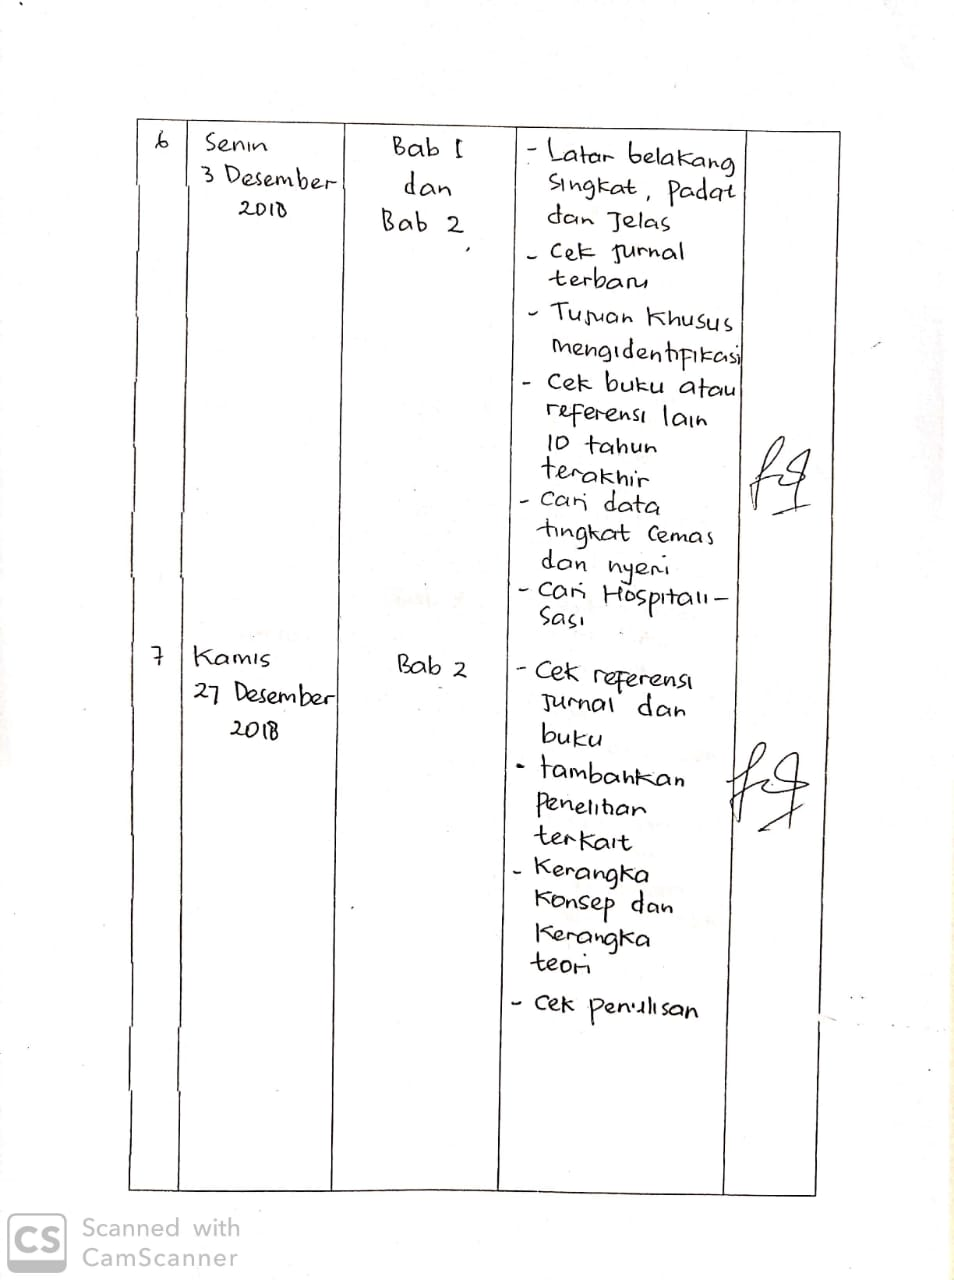 6
Senin
3 Desember
2018
Bab I
dan
Bab 2
- Latar belakang
singkat, padat
dan Jelas
- Cek Jurnal
terbaru
- Tujuan Khusus
mengidentifikasi
- Cek buku atau
referensi lain
10 tahun
terakhir
- Cari data
tingkat Cemas
dan nyeri
- Cari Hospitali-
sasi
7
Kamis
27 Desember
2018
Bab 2
- Cek referensi
Jurnal dan
buku
- tambahkan
Penelitian
terkait
- Kerangka
Konsep dan
Kerangka
teori
- Cek penulisan
CS
Scanned with
CamScanner